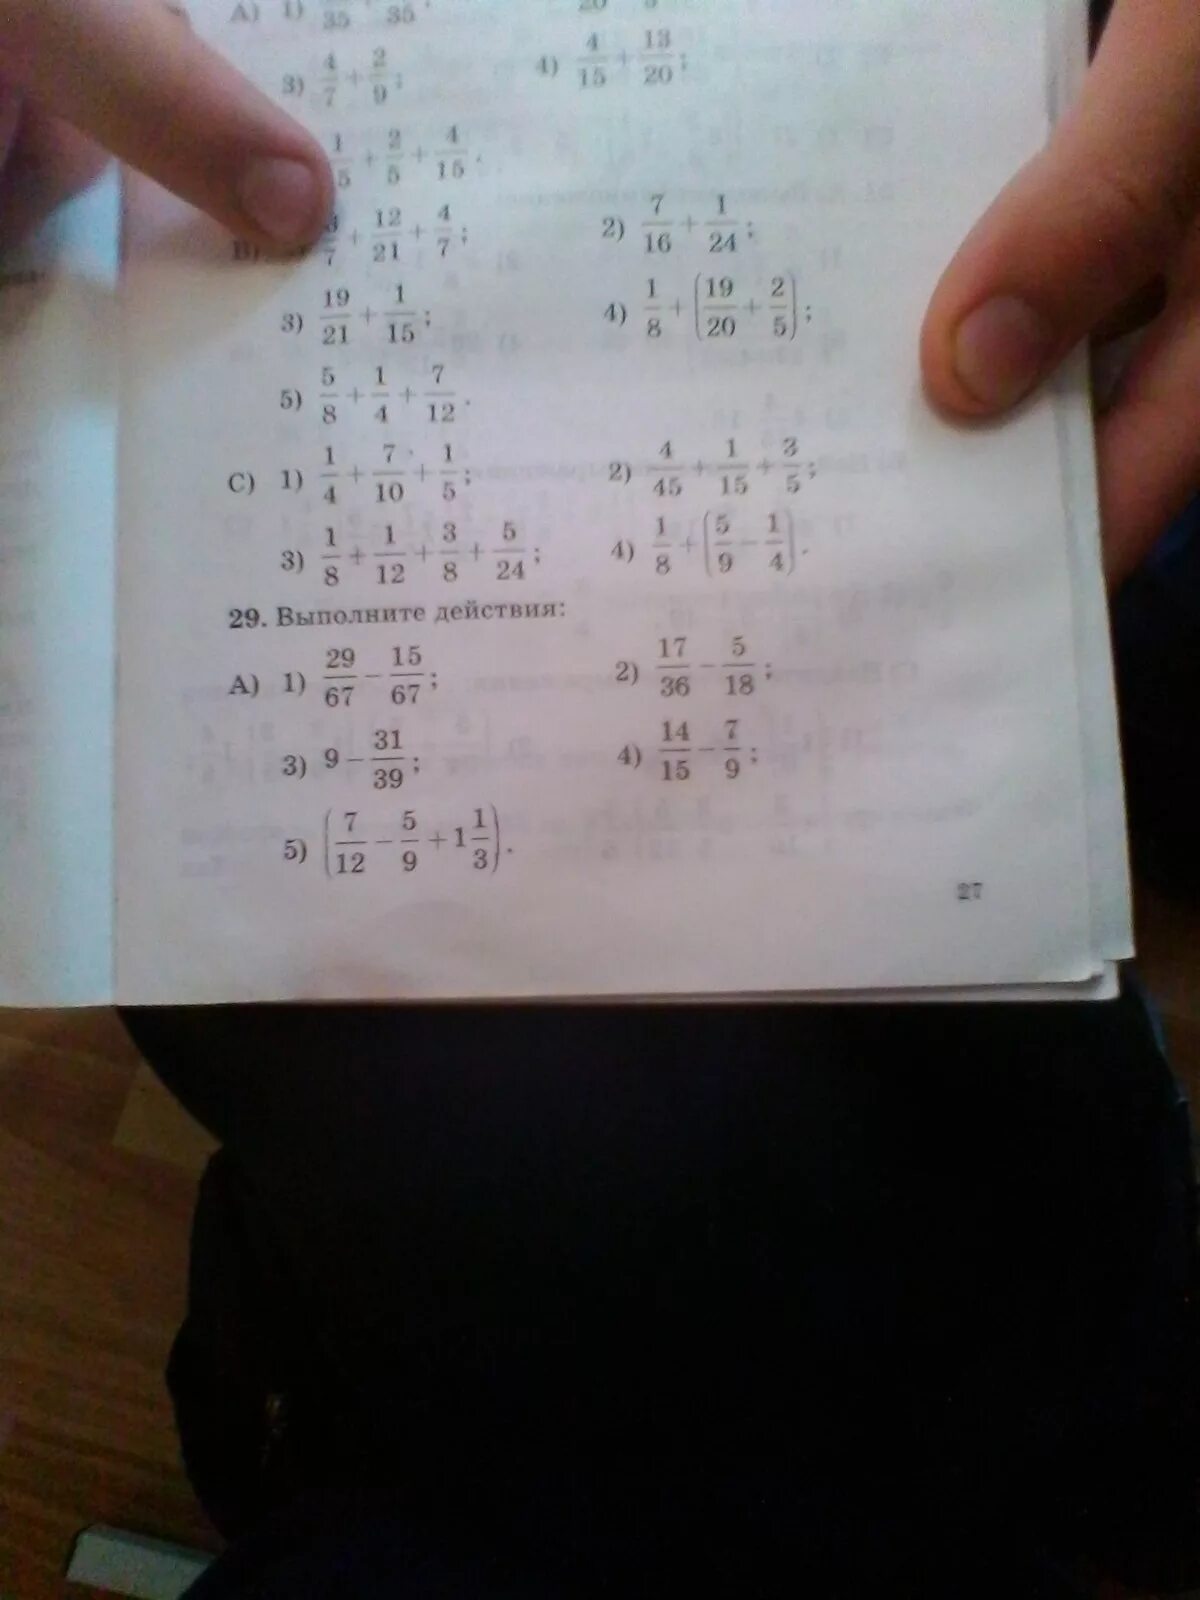 А) 1) /35 /35
3) 4/7 + 2/9; 4) 4/15 + 13/20;
1/5 + 2/5 + 4/15.
В) /7 + 12/21 + 4/7; 2) 7/16 + 1/24;
3) 19/21 + 1/15; 4) 1/8 + (19/20 + 2/5);
5) 5/8 + 1/4 + 7/12.
С) 1) 1/4 + 7/10 + 1/5; 2) 4/45 + 1/15 + 3/5;
3) 1/8 + 1/12 + 3/8 + 5/24; 4) 1/8 + (5/9 − 1/4).
29. Выполните действия:
А) 1) 29/67 − 15/67; 2) 17/36 − 5/18;
3) 9 − 31/39; 4) 14/15 − 7/9;
5) (7/12 − 5/9 + 1 1/3).
27